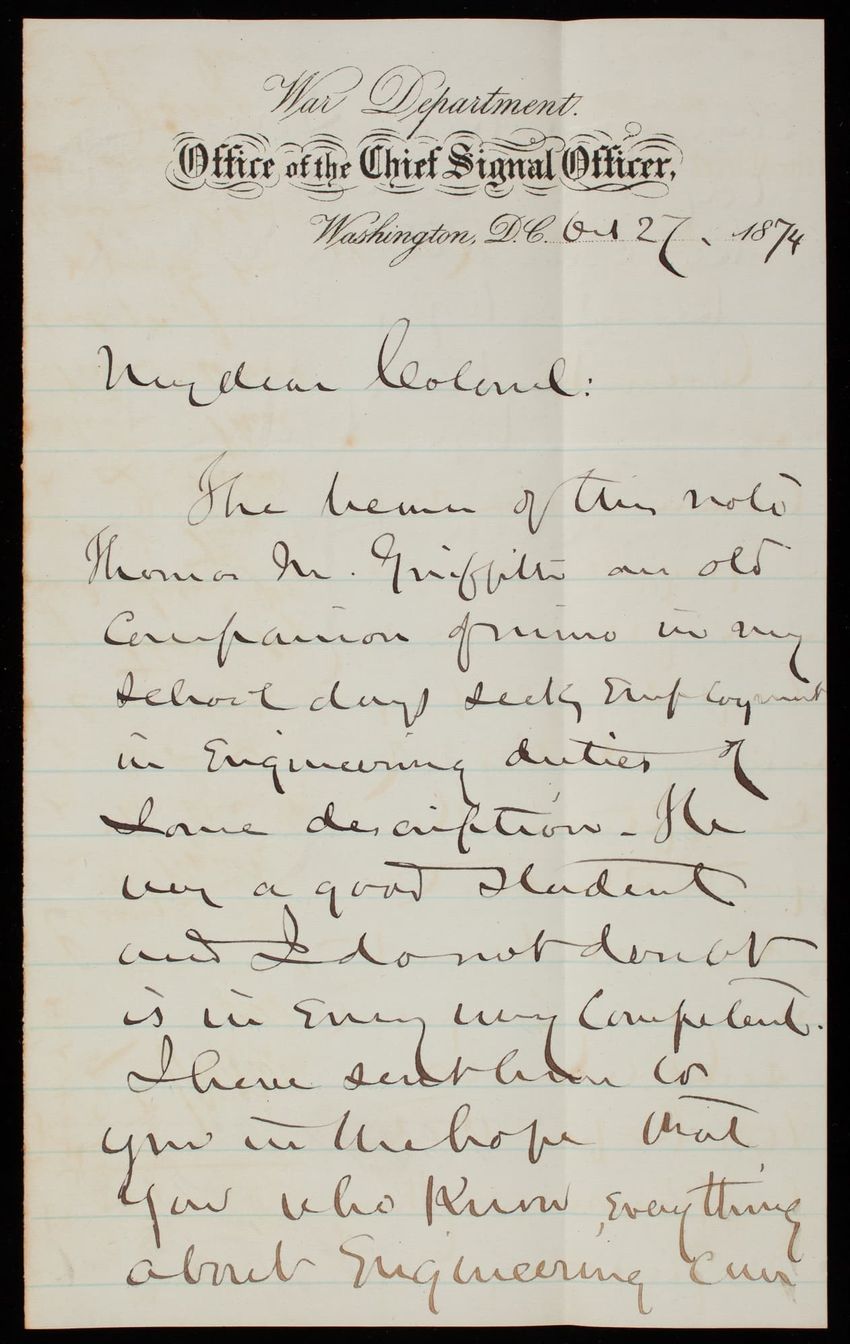 War Department.
Office of the Chief Signal Officer,
Washington, D.C. Oct 27, 1874
My dear Colonel:
The bearer of this note
Thomas M. Griffith an old
Companion of mine in my
school days seeks Employment
in Engineering duties of
some description - He
was a good student
and I do not doubt
is in Every way Competent.
I have sent him to
you in the hope that
you who Know Everything
about Engineering can